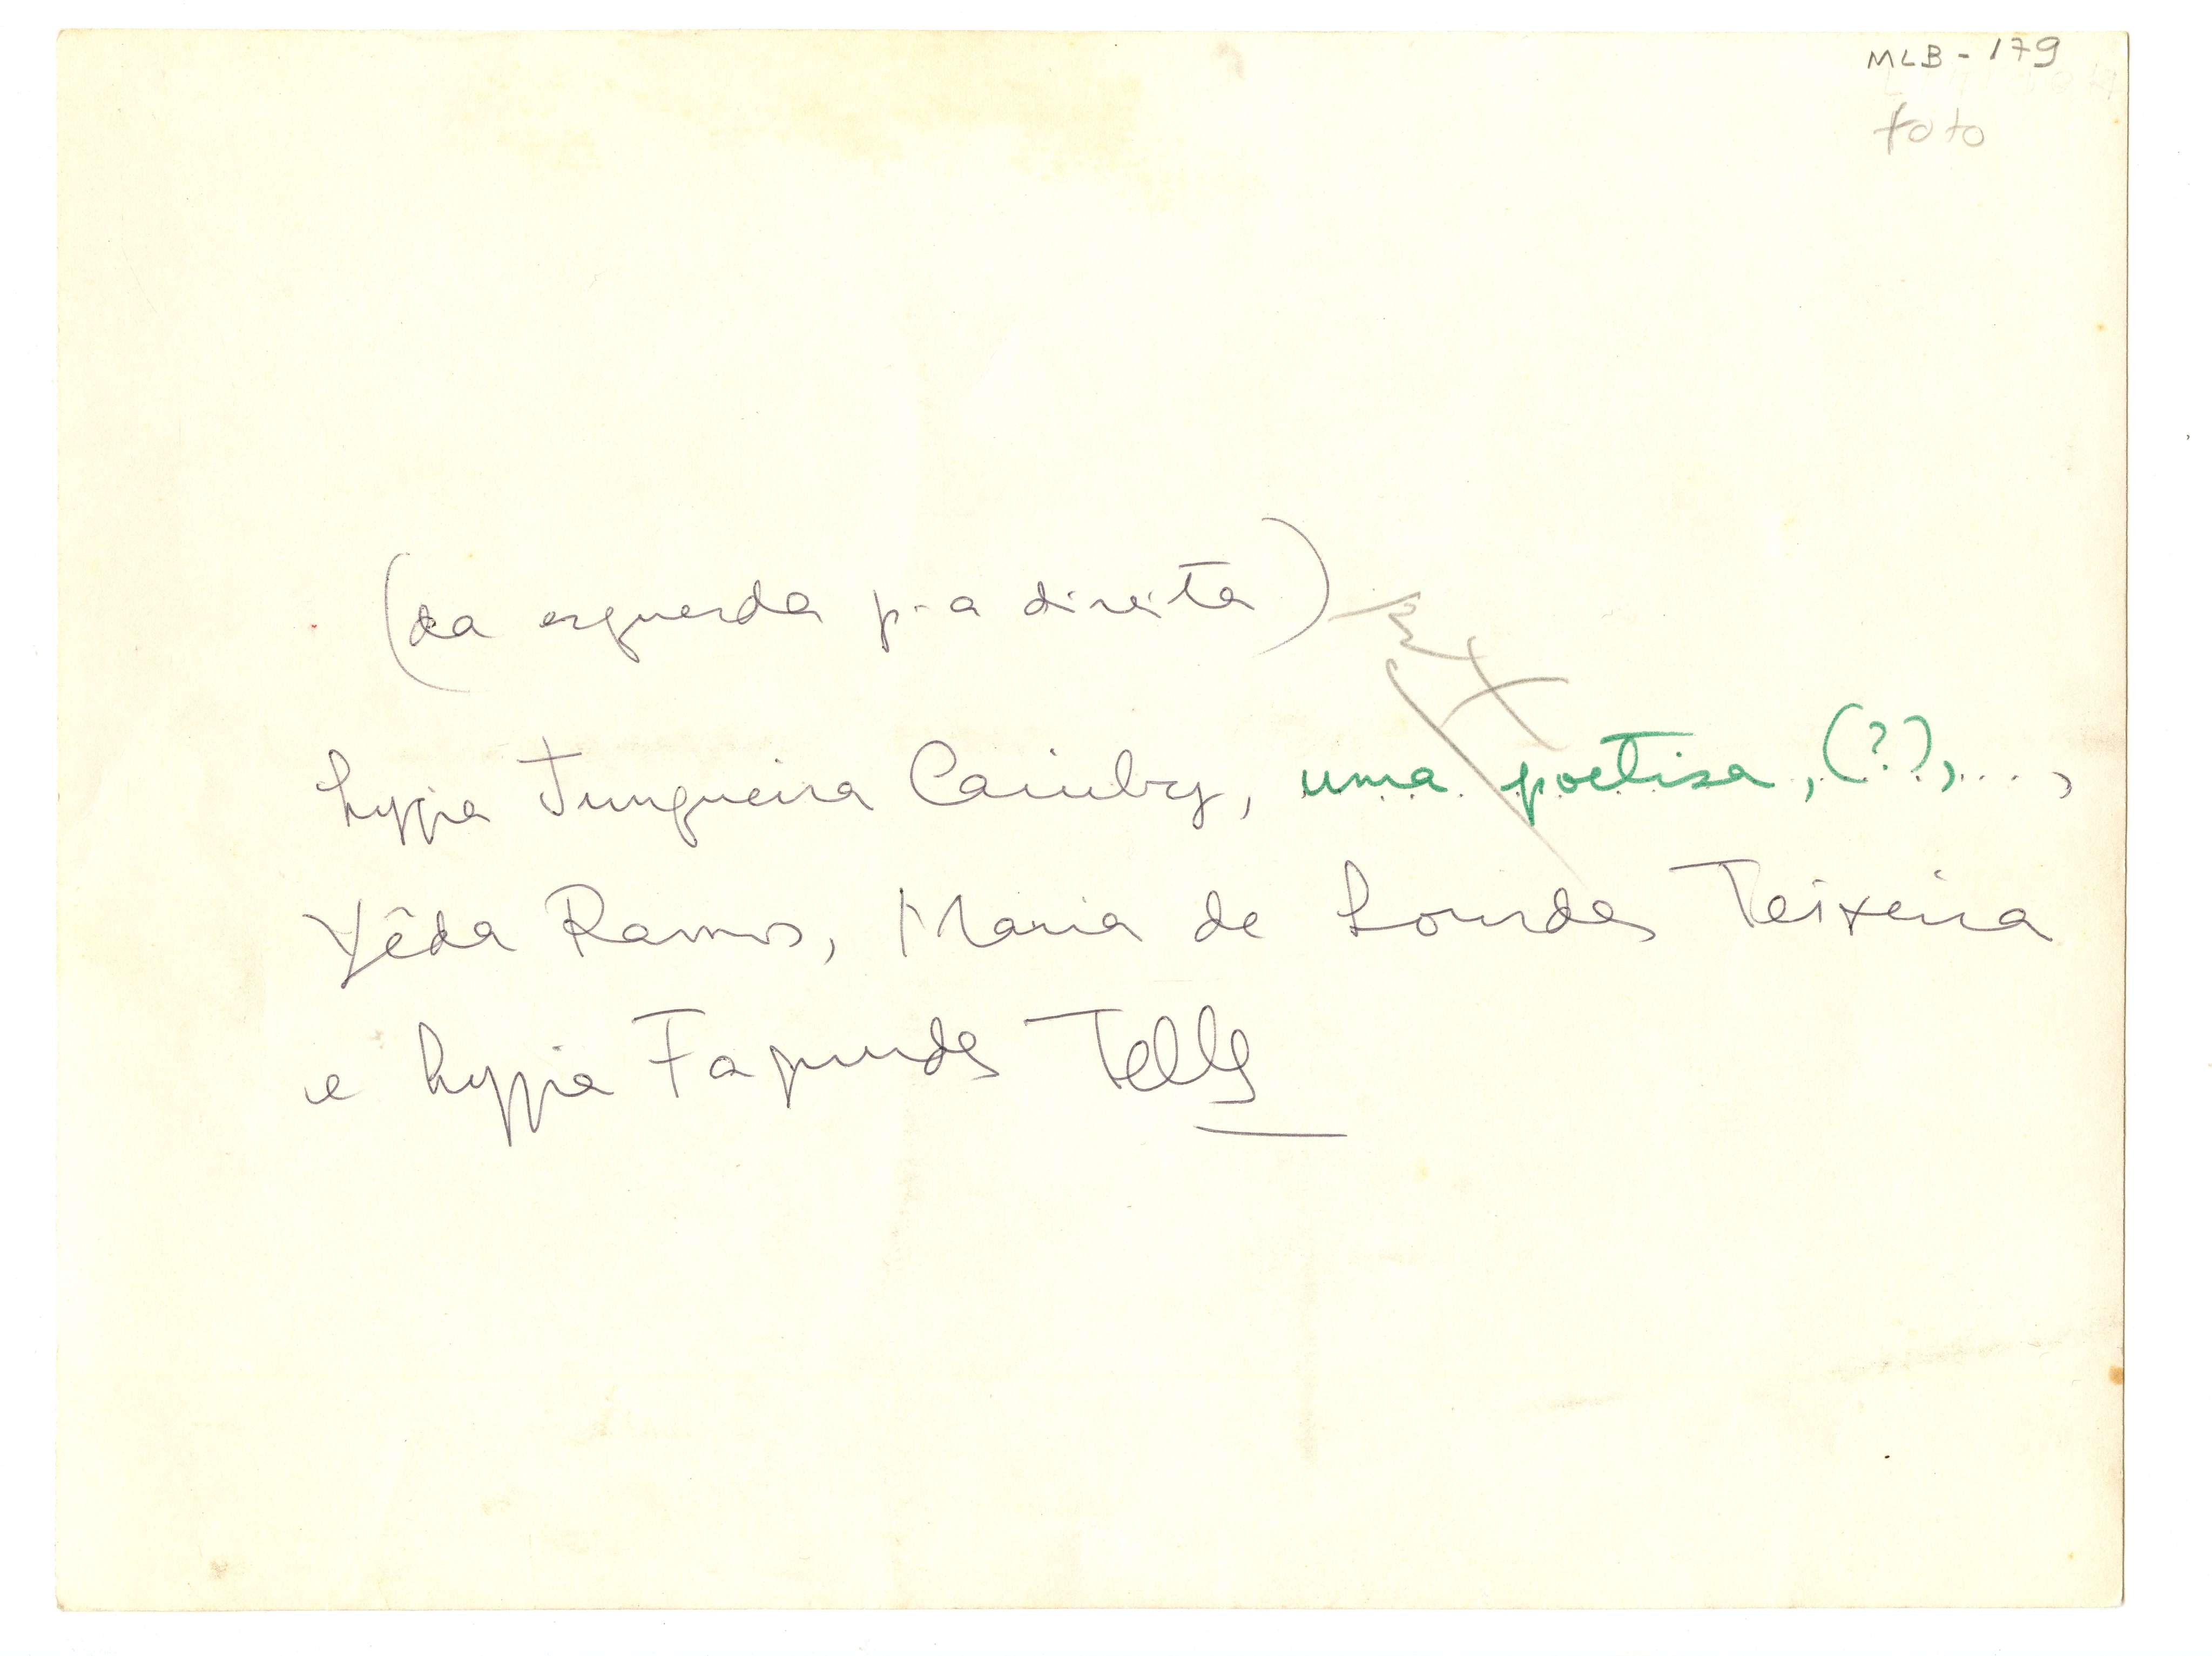 MLB - 179
foto
(da esquerda p. a direita)
Lygia Junqueira Caiuby, uma poetisa, (?), ... ,
Yêda Ramos, Maria de Lourdes Teixeira
e Lygia Fagundes Telles